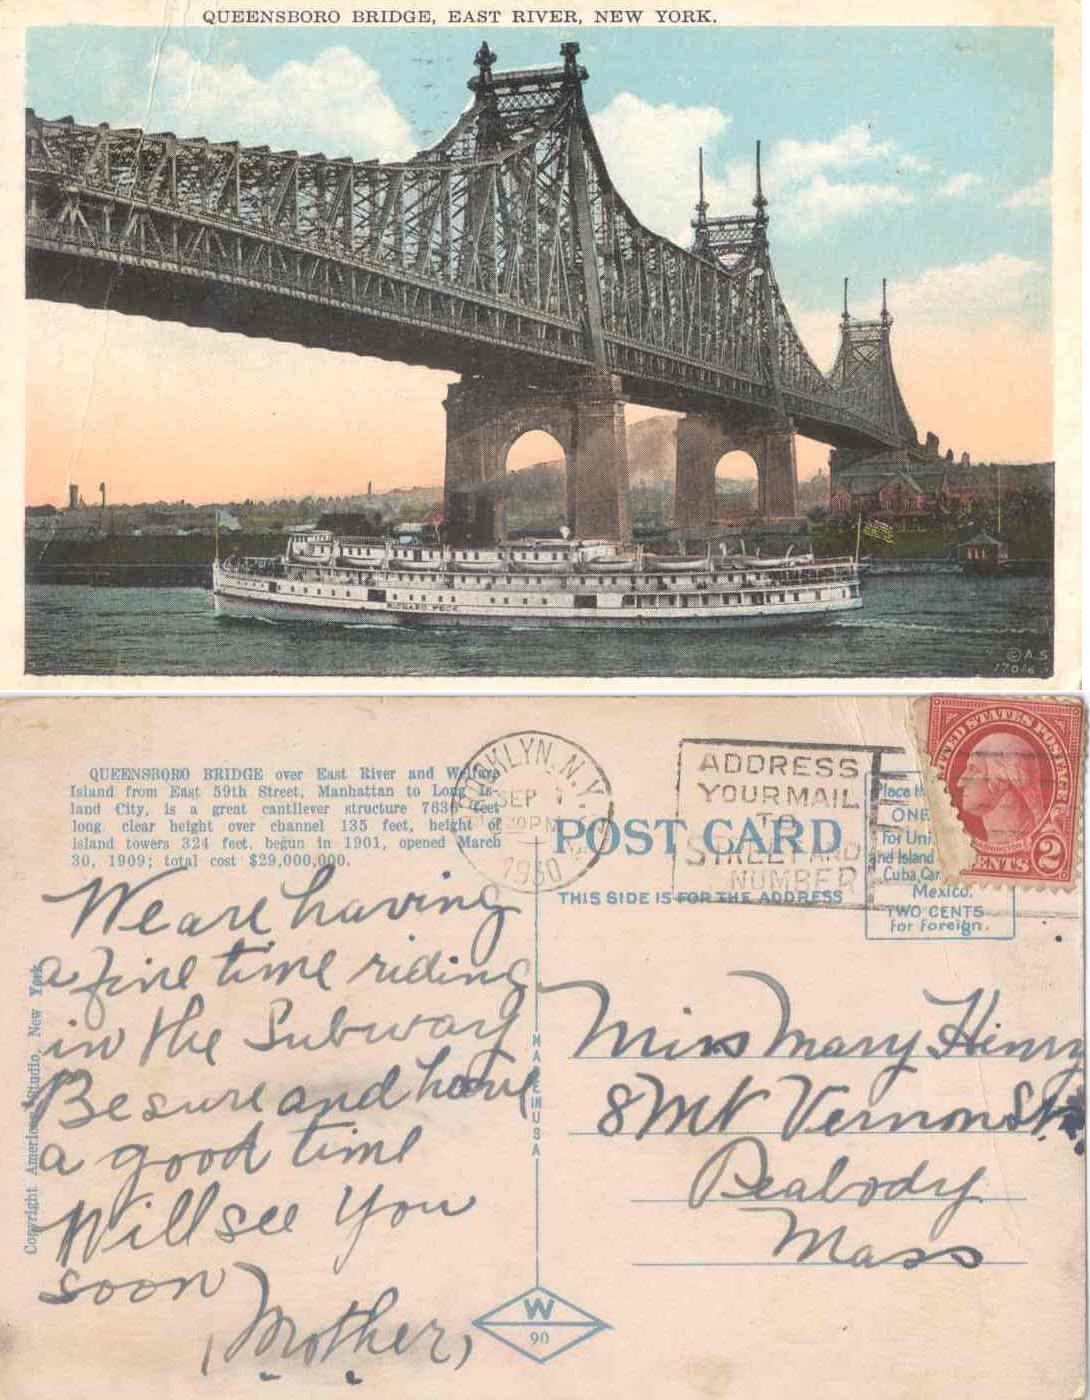 QUEENSBORO BRIDGE, EAST RIVER, NEW YORK.
RICHARD PECK
© A.S
QUEENSBORO BRIDGE over East River and Welfare
Island from East 59th Street, Manhattan to Long Is-
land City, is a great cantilever structure 7636 feet
long clear height over channel 135 feet, height of
island towers 324 feet. begun in 1901, opened March
30, 1909; total cost $29,000,000.
BROOKLYN, N.Y.
SEP 7
30PM
1930
ADDRESS
YOUR MAIL
TO
STREET AND
NUMBER
UNITED STATES POSTAGE
WASHINGTON
2 CENTS 2
POST CARD
THIS SIDE IS FOR THE ADDRESS
Place
ONE
For Uni
and Island
Cuba, Can
Mexico.
TWO CENTS
for foreign.
We are having
a fine time riding
in the Subway
Be sure and have
a good time
Will see You
soon
(Mother)
Miss Mary Henry
8 Mt Vernon St.
Peabody
Mass
Copyright American Studio, New York
MADE IN USA
W
90